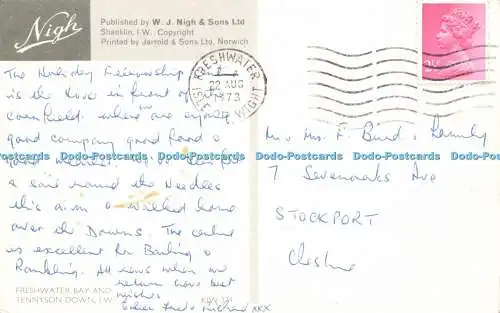 Nigh
Published by W. J. Nigh & Sons Ltd
Shanklin, I.W. Copyright
Printed by Jarrold & Sons Ltd, Norwich
FRESHWATER
22 AUG
1973
ISLE OF WIGHT
2½
The Holiday Fellowship
is the House in front of the
cornfield where we are enjoying
good company good food &
good weather.
a sail round the Needles
this a.m. & walked home
over the Downs. The centre
is excellent for Bathing &
Rambling. All news when we
return love best
wishes
Fred & Richard XXX
Mr Mrs F. Bird & Family
7 Sevenoaks Ave
STOCKPORT
Cheshire
FRESHWATER BAY AND
TENNYSON DOWN, I.W.
Dodo-Postcards Dodo-Postcards Dodo-Postcards Dodo-Postcards